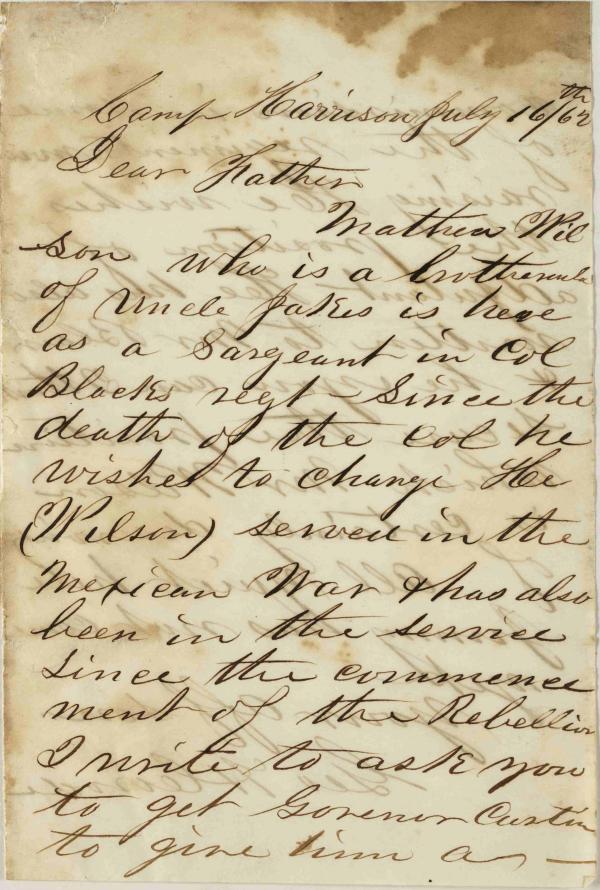 Camp Harrison July 16th/62
Dear Father
Mathew Wil
son who is a brotherinla
of Uncle Jakes is here
as a Sargeant in Col
Blacks regt - Since the
death of the Col he
wishes to change He
(Wilson) served in the
Mexican War & has also
been in the service
since the commence
ment of the Rebellion
I write to ask you
to get Govenor Curtin
to give him a —